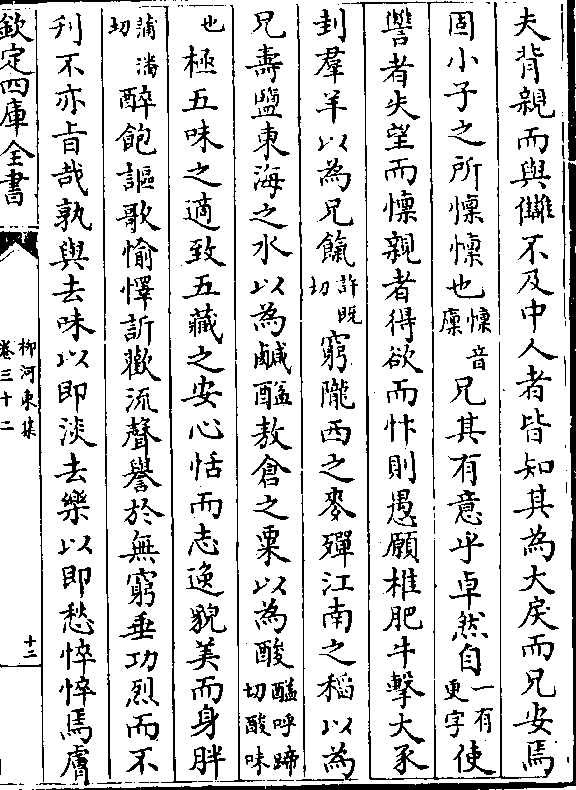 夫背親而與讎不及中人者皆知其為大戾而兄安焉
固小子之所懍懍也懍音廩兄其有意乎卓然自一有更字使
讐者失望而懍親者得欲而忭則愚願椎肥牛擊大豕
刲羣羊以為兄餼許既切窮隴西之麥殫江南之稻以為
兄壽鹽東海之水以為鹹醯敖倉之粟以為酸醯呼蹄切酸味
也極五味之適致五藏之安心恬而志逸貌美而身胖
蒲潘切醉飽謳歌愉懌訢歡流聲譽於無窮垂功烈而不
刋不亦旨哉孰與去味以即淡去樂以即愁悴悴焉膚
欽定四庫全書
柳河東集
卷三十二
十三